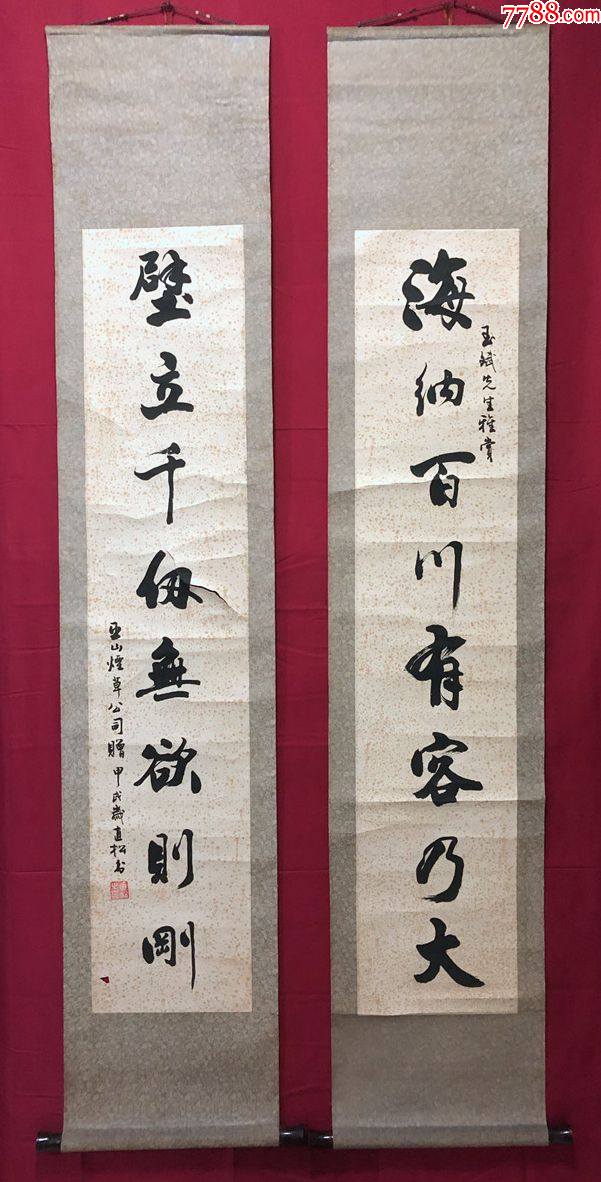 7788.com
海納百川有容乃大
玉斌先生雅賞
壁立千仞無欲則剛
巫山煙草公司贈 甲戌歲直松書